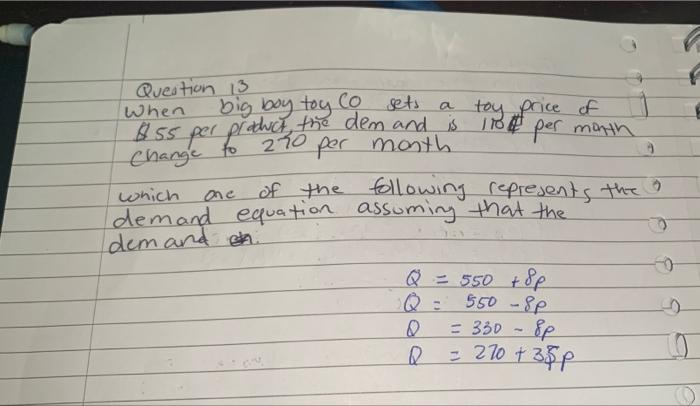 Question 13
When big boy toy CO sets a toy price of
$55 per product, the demand is 110 per month
Change to 270 per month
which one of the following represents the
demand equation assuming that the
demand
Q = 550 + 8p
Q = 550 - 8p
Q = 330 - 8p
Q = 270 + 35p